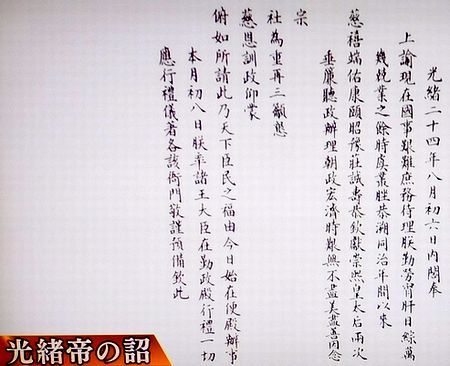 光緒二十四年八月初六日內閣奉
上諭現在國事艱難庶務待理朕勤勞宵旰日綜萬
幾兢業之餘時虞叢脞恭溯同治年間以來
慈禧端佑康頤昭豫莊誠壽恭欽獻崇熙皇太后兩次
垂簾聽政辦理朝政宏濟時艱無不盡美盡善因念
宗
社為重再三籲懇
慈恩訓政仰蒙
俯如所請此乃天下臣民之福由今日始在便殿辦事
本月初八日朕率諸王大臣在勤政殿行禮一切
應行禮儀著各該衙門敬謹預備欽此
光緒帝の詔